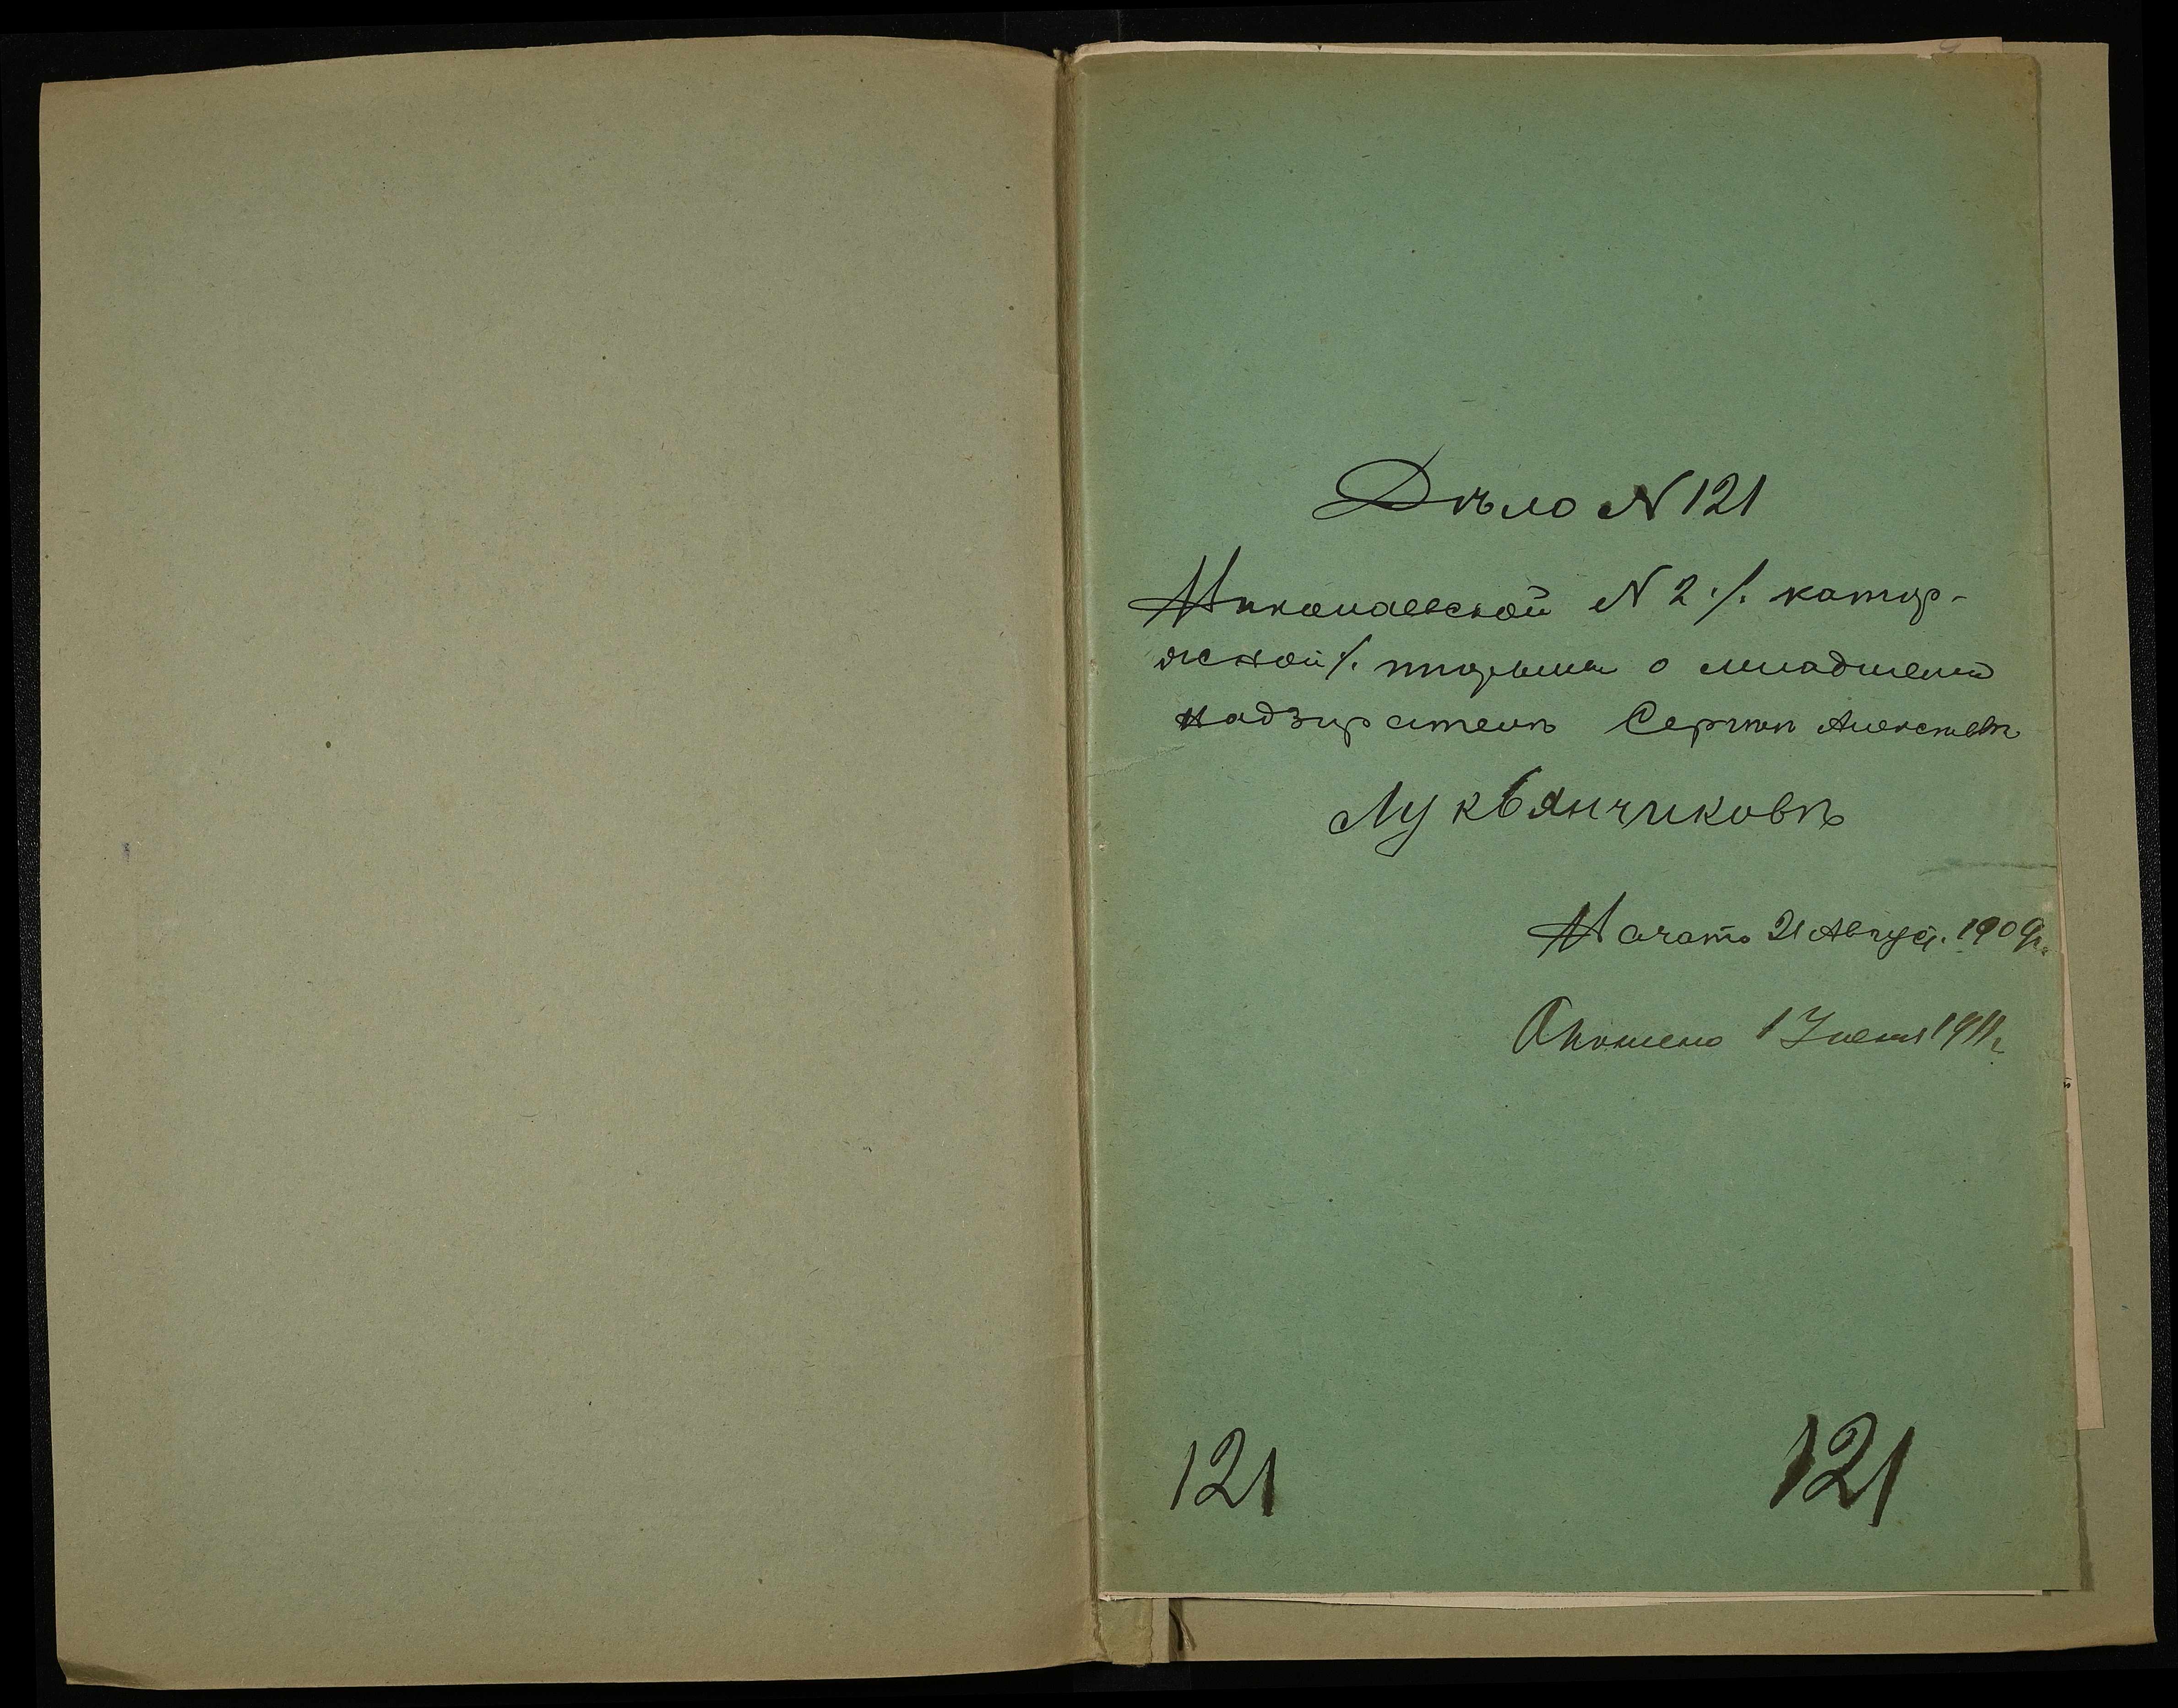 Дѣло N 121
Николаевской N 2 ./. катор-
жной ./. тюрьмы о младшемъ
надзирателѣ Сергѣѣ Алексѣевѣ
Лукьянчиковѣ
Начато 21 Август. 1909 г.
Окончено 1 Июня 1911 г.
121 121